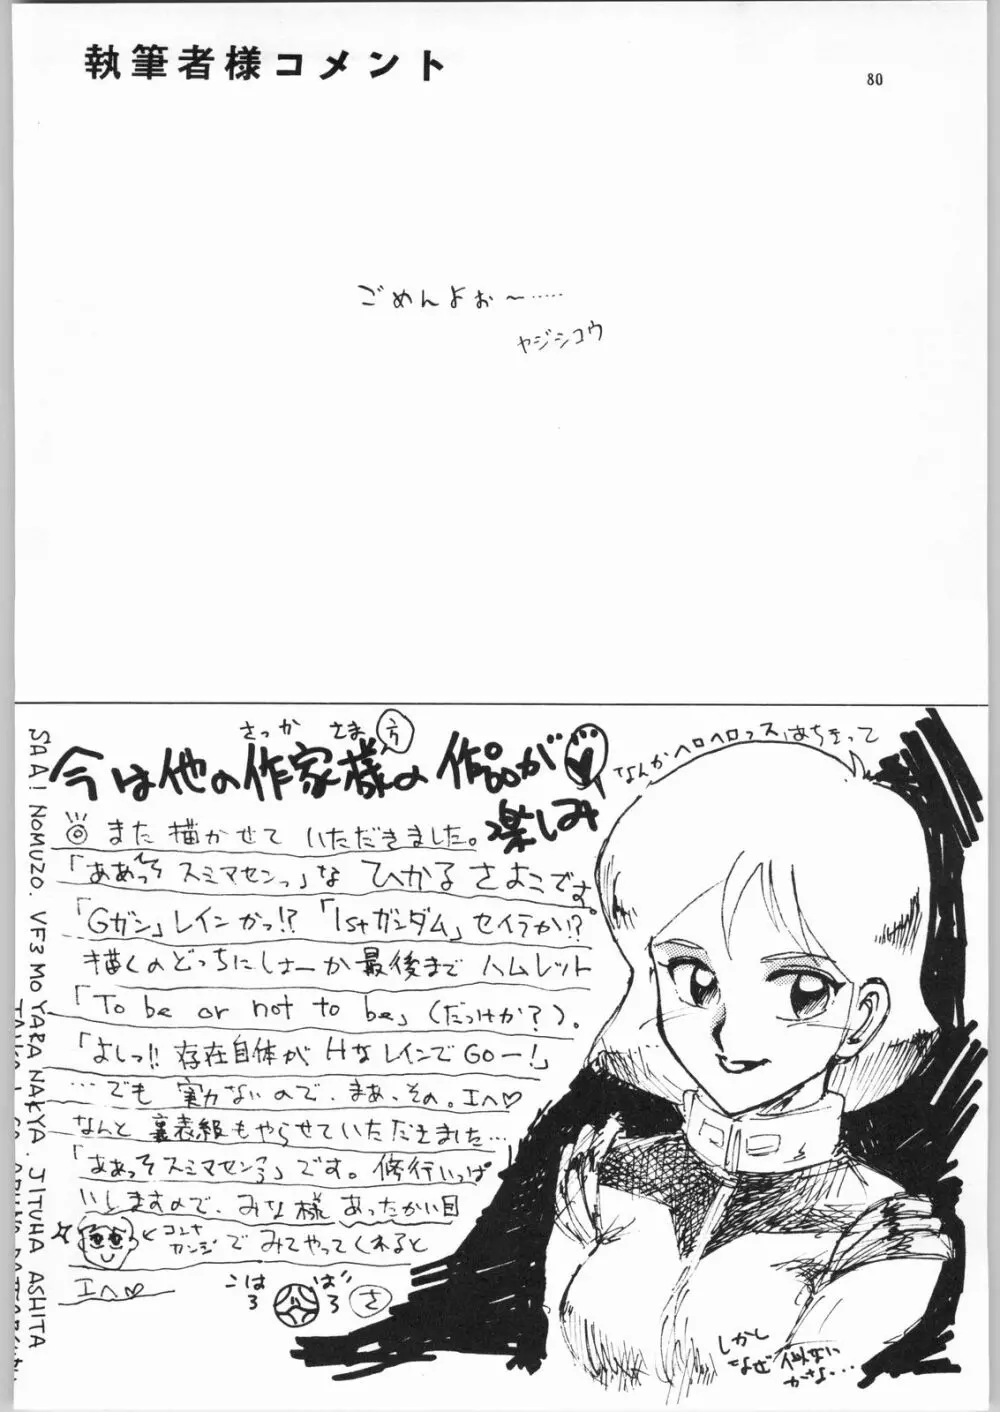 執筆者様コメント
80
ごめんよぉ〜……
ヤジシコウ
さっか さま
今は他の作家様の作品が
楽しみ
また描かせていただきました。
「ああってスミマセンっ」な ひかるさよこです。
「Gガン」レインかっ!?「1stガンダム」セイラか!?
描くのどっちにしよーか最後までハムレット
「To be or not to be」(だっけか?)。
「よしっ!! 存在自体がHなレインでGOー!」
…でも 実力ないので、まあ、その。エヘ♡
なんと裏表紙もやらせていただきました…
「ああってスミマセンっ」です。修行いっぱ
いしますので、みな様 あったかい目
コンナ
カンジ
でみてやってくれると
エヘ♡
さ
なんかヘロヘロっス
しかし
なぜ似ない
かな…
SAA! NOMUZO. VF3 MO YARANAKYA. JITUHA ASHITA